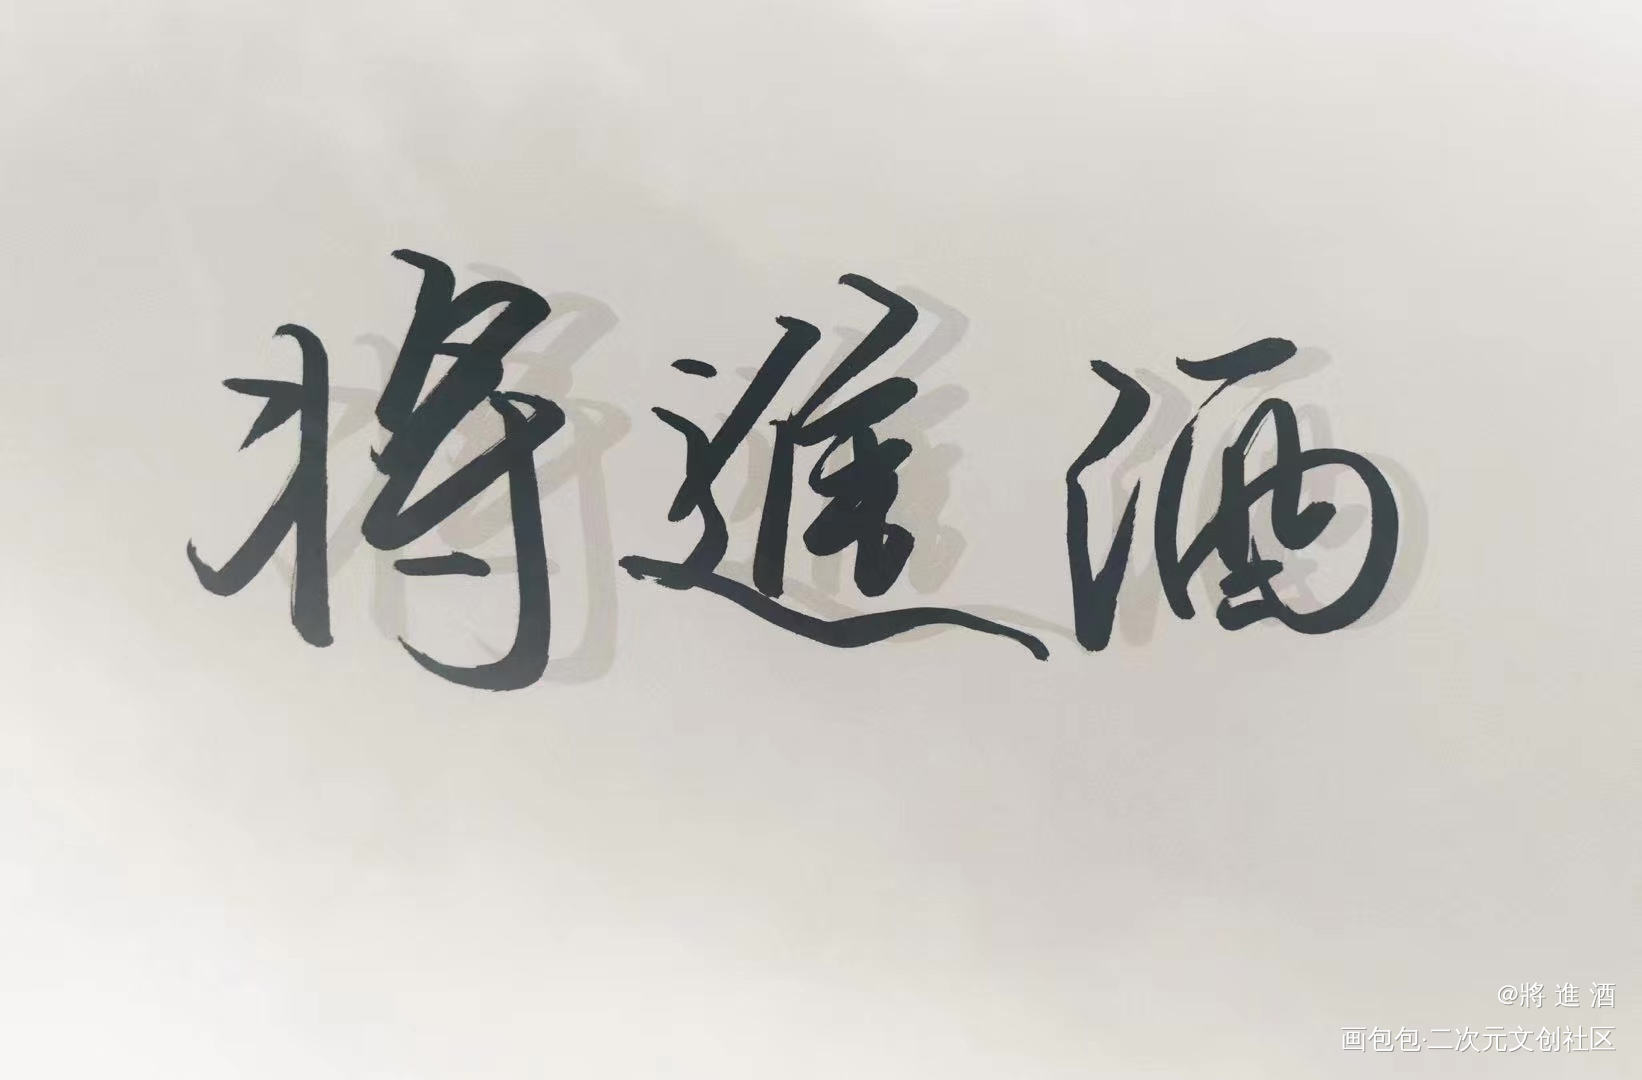 將進酒
@將進酒
画包包·二次元文创社区